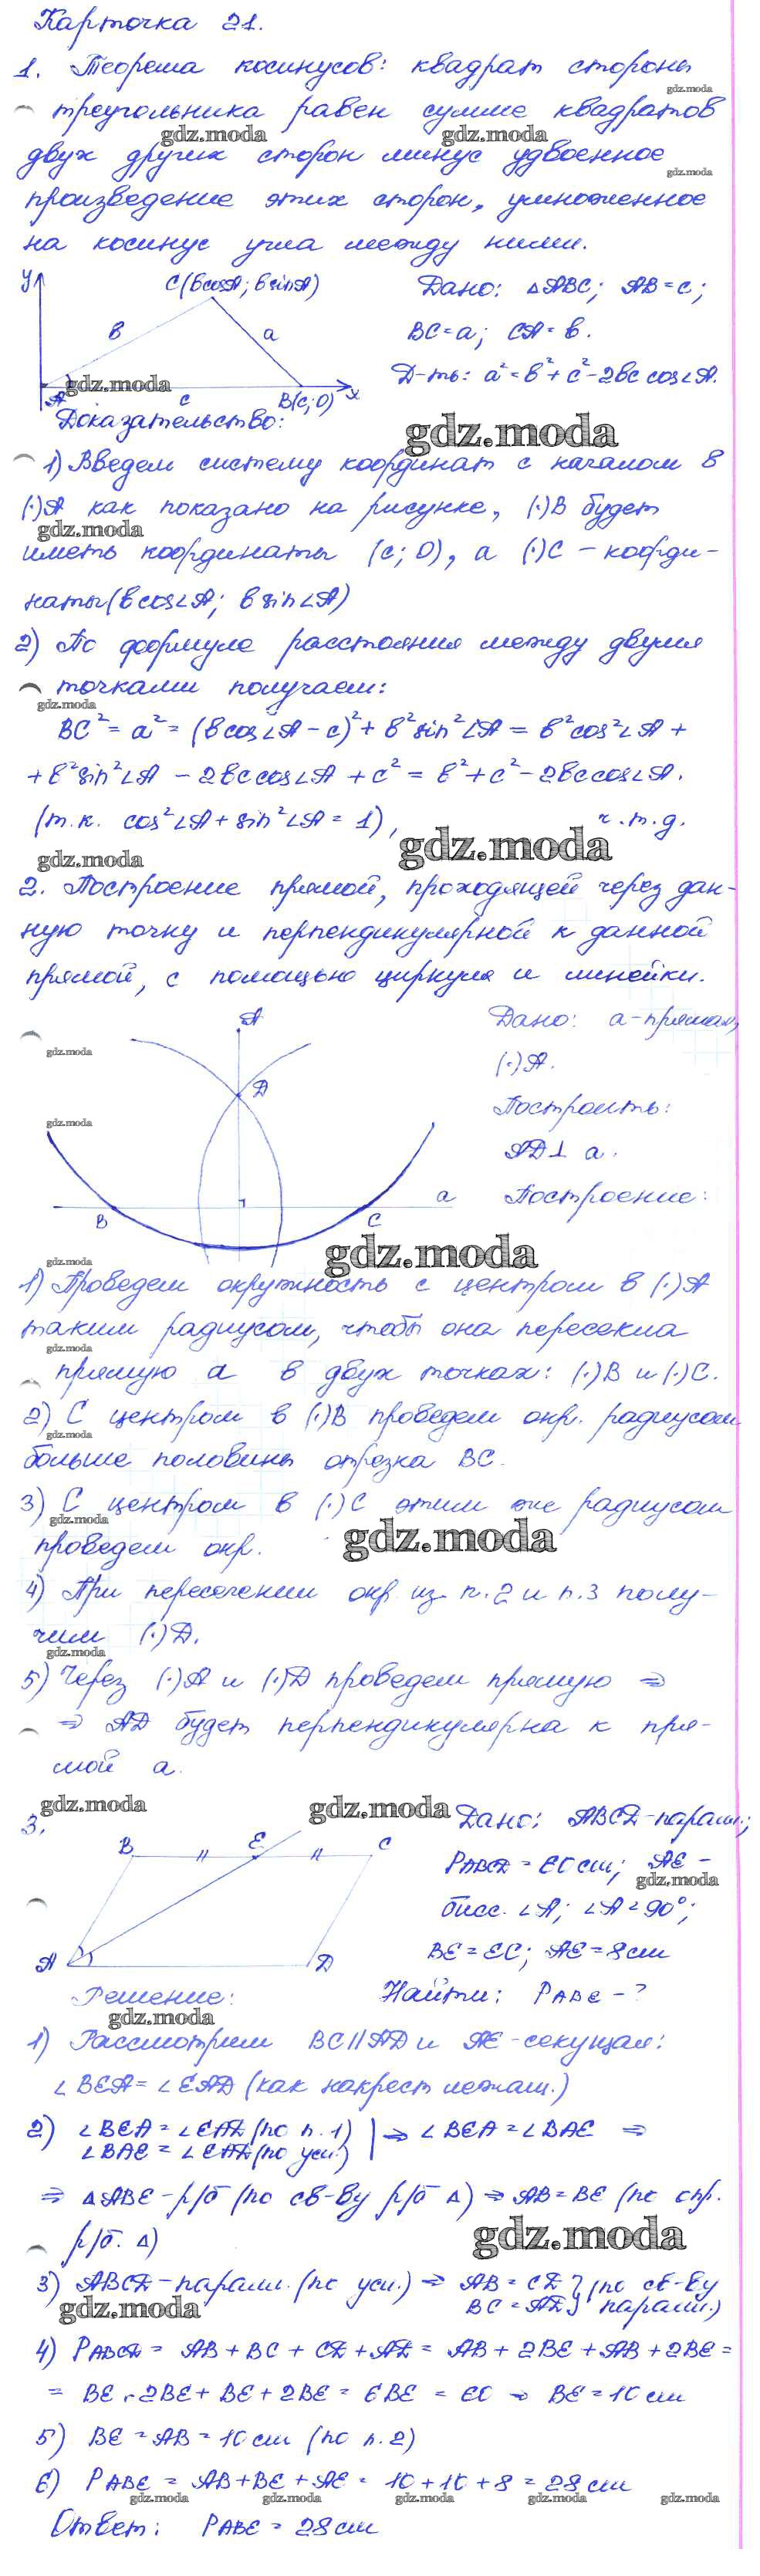 Карточка 21.
1. Теорема косинусов: квадрат стороны
треугольника равен сумме квадратов
двух других сторон минус удвоенное
произведение этих сторон, умноженное
на косинус угла между ними.
y
C(bcosA; bsinA)
b
a
A
c
B(c; 0)
x
Дано: △ABC; AB=c;
BC=a; CA=b.
Д-ть: a²=b²+c²-2bc cos∠A.
Доказательство:
1) Введем систему координат с началом в
(·)A как показано на рисунке, (·)B будет
иметь координаты (c; 0), а (·)C – коорди-
наты (b cos∠A; b sin∠A)
2) По формуле расстояния между двумя
точками получаем:
BC² = a² = (b cos∠A - c)² + b² sin²∠A = b² cos²∠A +
+ b² sin²∠A - 2bc cos∠A + c² = b² + c² - 2bc cos∠A.
(т.к. cos²∠A + sin²∠A = 1), ч.т.д.
2. Построение прямой, проходящей через дан-
ную точку и перпендикулярной к данной
прямой, с помощью циркуля и линейки.
A
D
B
C
a
Дано: a-прямая,
(·)A.
Построить:
AD⊥ a.
Построение:
1) Проведем окружность с центром в (·)A
таким радиусом, чтобы она пересекла
прямую a в двух точках: (·)B и (·)C.
2) С центром в (·)B проведем окр. радиусом
больше половины отрезка BC.
3) С центром в (·)C этим же радиусом
проведем окр.
4) При пересечении окр. из п.2 и п.3 полу-
чим (·)D.
5) Через (·)A и (·)D проведем прямую ⇒
⇒ AD будет перпендикулярна к пря-
мой a.
3.
B
E
C
A
D
Дано: ABCD-парал.;
PABCD = 60 см; AE –
бисс. ∠A; ∠A≠90°;
BE = EC; AE = 8 см
Найти: PABE - ?
Решение:
1) Рассмотрим BC||AD и AE-секущая:
∠BEA = ∠EAD (как накрест лежащ.)
2) ∠BEA = ∠EAD (по п. 1) | ⇒ ∠BEA = ∠BAE ⇒
∠BAE = ∠EAD (по усл.)
⇒ △ABE - р/б (по св-ву р/б △) ⇒ AB = BE (по опр.
р/б. △)
3) ABCD - парал. (по усл.) ⇒ AB = CD } (по св-ву
BC = AD } парал.)
4) PABCD = AB + BC + CD + AD = AB + 2BE + AB + 2BE =
= BE + 2BE + BE + 2BE = 6BE = 60 ⇒ BE = 10 см
5) BE = AB = 10 см (по п. 2)
6) PABE = AB + BE + AE = 10 + 10 + 8 = 28 см
Ответ: PABE = 28 см
gdz.moda